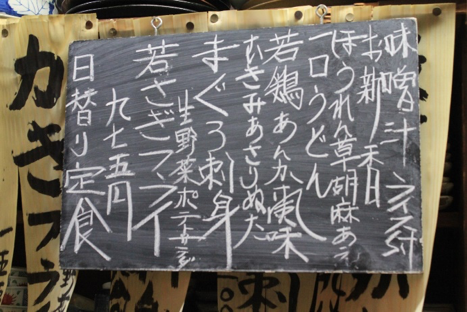 日替り定食
九七五円
若さぎフライ
生野菜ポテトサラダ
まぐろ刺身
むきみあさりぬた
若鶏あんかけ風味
一口うどん
ほうれん草胡麻あえ
お新香
味噌汁 ライス付
カキフラ
刺